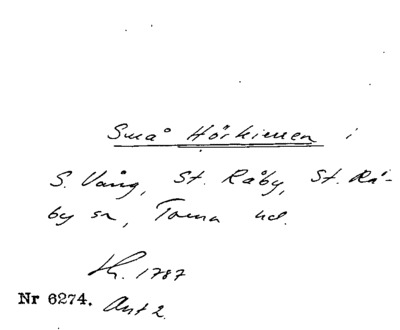 Små Hörkiemen i
S. Vång, St. Råby, St. Rå-
by sn, Torna hd.
Sk. 1787
Nr 6274. Akt 2.